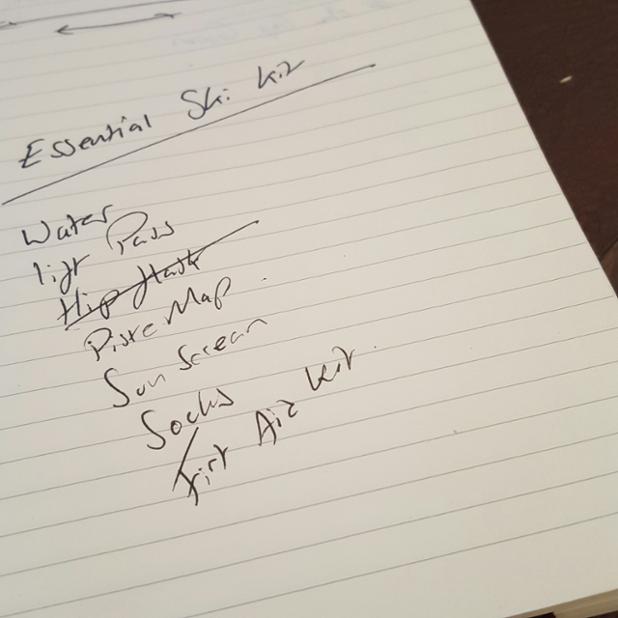 Essential Ski Kit
Water
lift Pass
Hip flask
Piste Map
Sun Screan
Socks
First Aid Kit